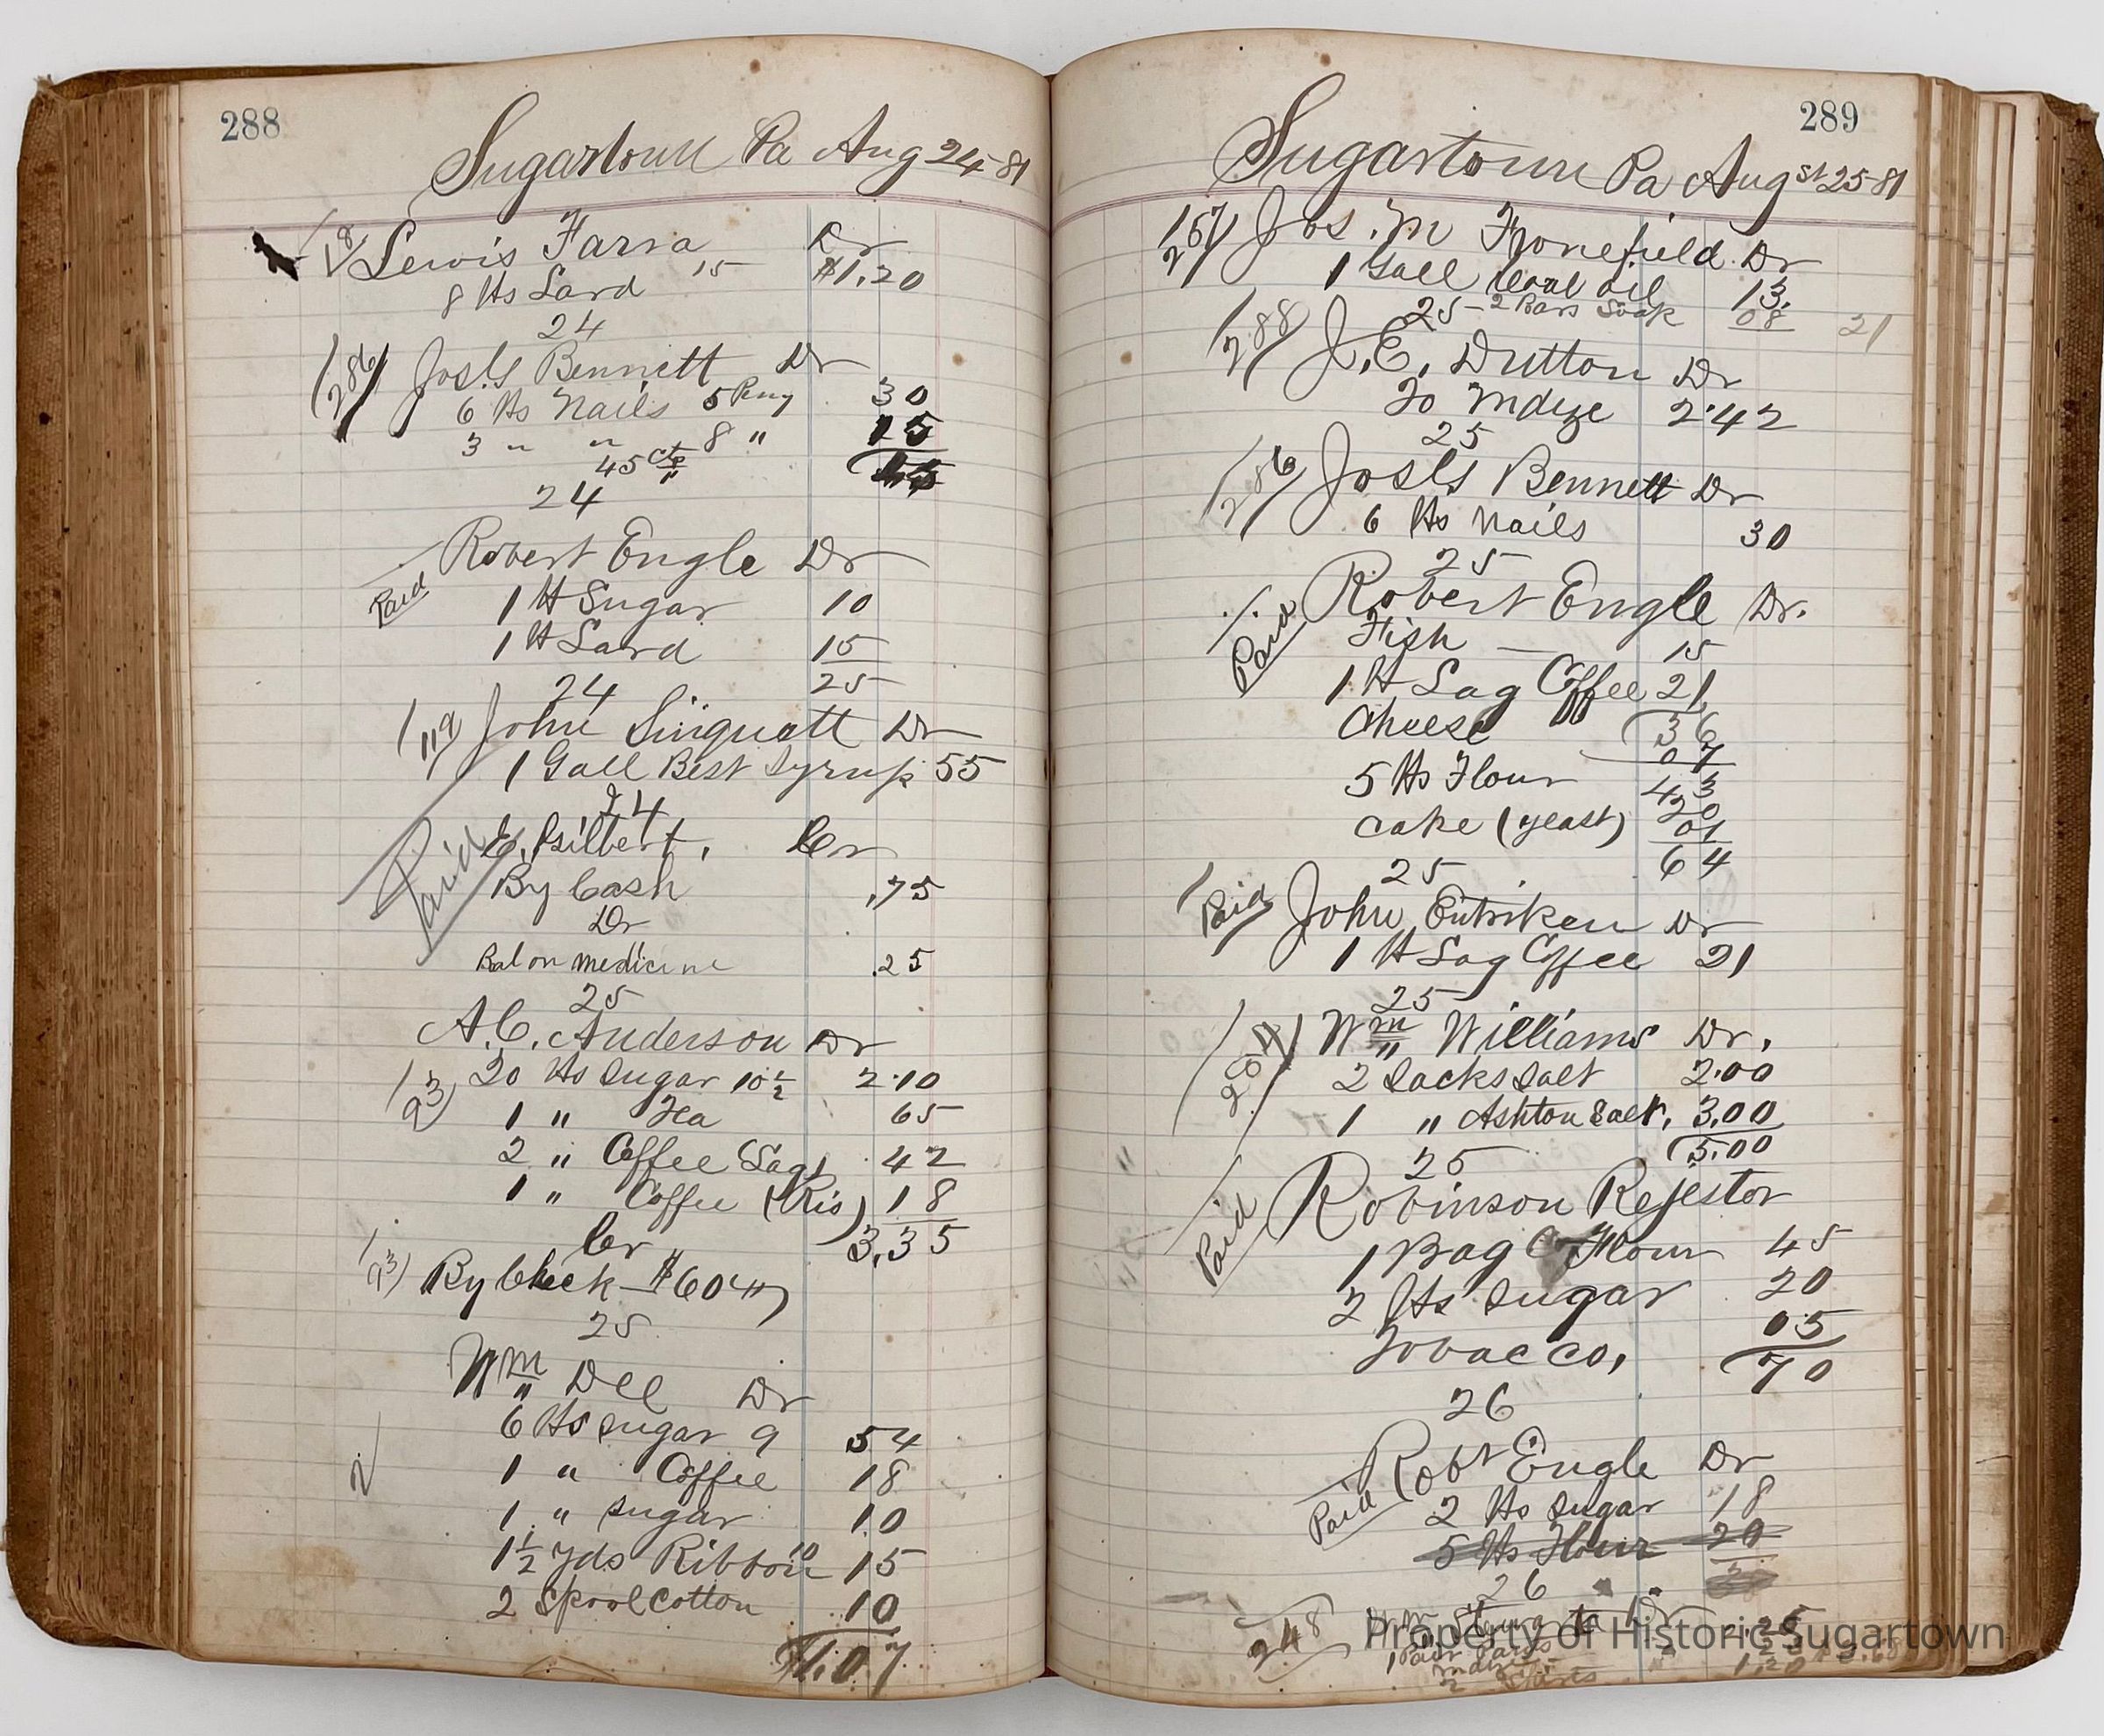 288
Sugartown Pa Aug 24-81
18 Lewis Farra Dr
8 lbs Lard 15 $1.20
24
286 Jos. Bennett Dr
6 lbs Nails 5 Peny 30
3 " " 8 " 15
45 cts
24
Robert Engle Dr
Paid
1 lb Sugar 10
1 lb Lard 15
25
24
119 John Sinquett Dr
1 Gall Best Syrup 55
24
Paid
E. Gilbert, Cr
By Cash .75
Dr
Bal on medicine .25
25
A. C. Anderson Dr
93
20 lbs sugar 10 1/2 2.10
1 " Tea 65
2 " Coffee (Lag) 42
1 " Coffee (Rio) 18
3.35
Cr
93 By Check $60
25
Wm Dell Dr
6 lbs sugar 9 54
1 " Coffee 18
1 " sugar 10
1 1/2 yds Ribbon 10 15
2 Spool Cotton 10
$1.07
289
Sugartown Pa Augst 25-81
257 Jos. M Fronefield Dr
1 Gall Coal oil 13
25 - 2 Bars Soap 08 21
288 J. E. Dutton Dr
To Mdze 2.42
25
286 Jos Bennett Dr
6 lbs Nails 30
25
Robert Engle Dr.
Paid
Fish 15
1 lb Lag Coffee 21
36
Cheese 07
43
5 lbs Flour 20
Cake (yeast) 01
64
25
Paid John Entriken Dr
1 lb Lag Coffee 21
25
284 Wm Williams Dr.
2 Sacks Salt 2.00
1 " Ashton Salt, 3.00
5.00
25
Paid
Robinson Rejestor
1 Bag Flour 45
2 lbs sugar 20
Tobacco, 05
70
26
Robt Engle Dr
Paid
2 lbs sugar 18
5 lbs Flour 20
26
248 Wm Dr
1 Pair
Property of Historic Sugartown